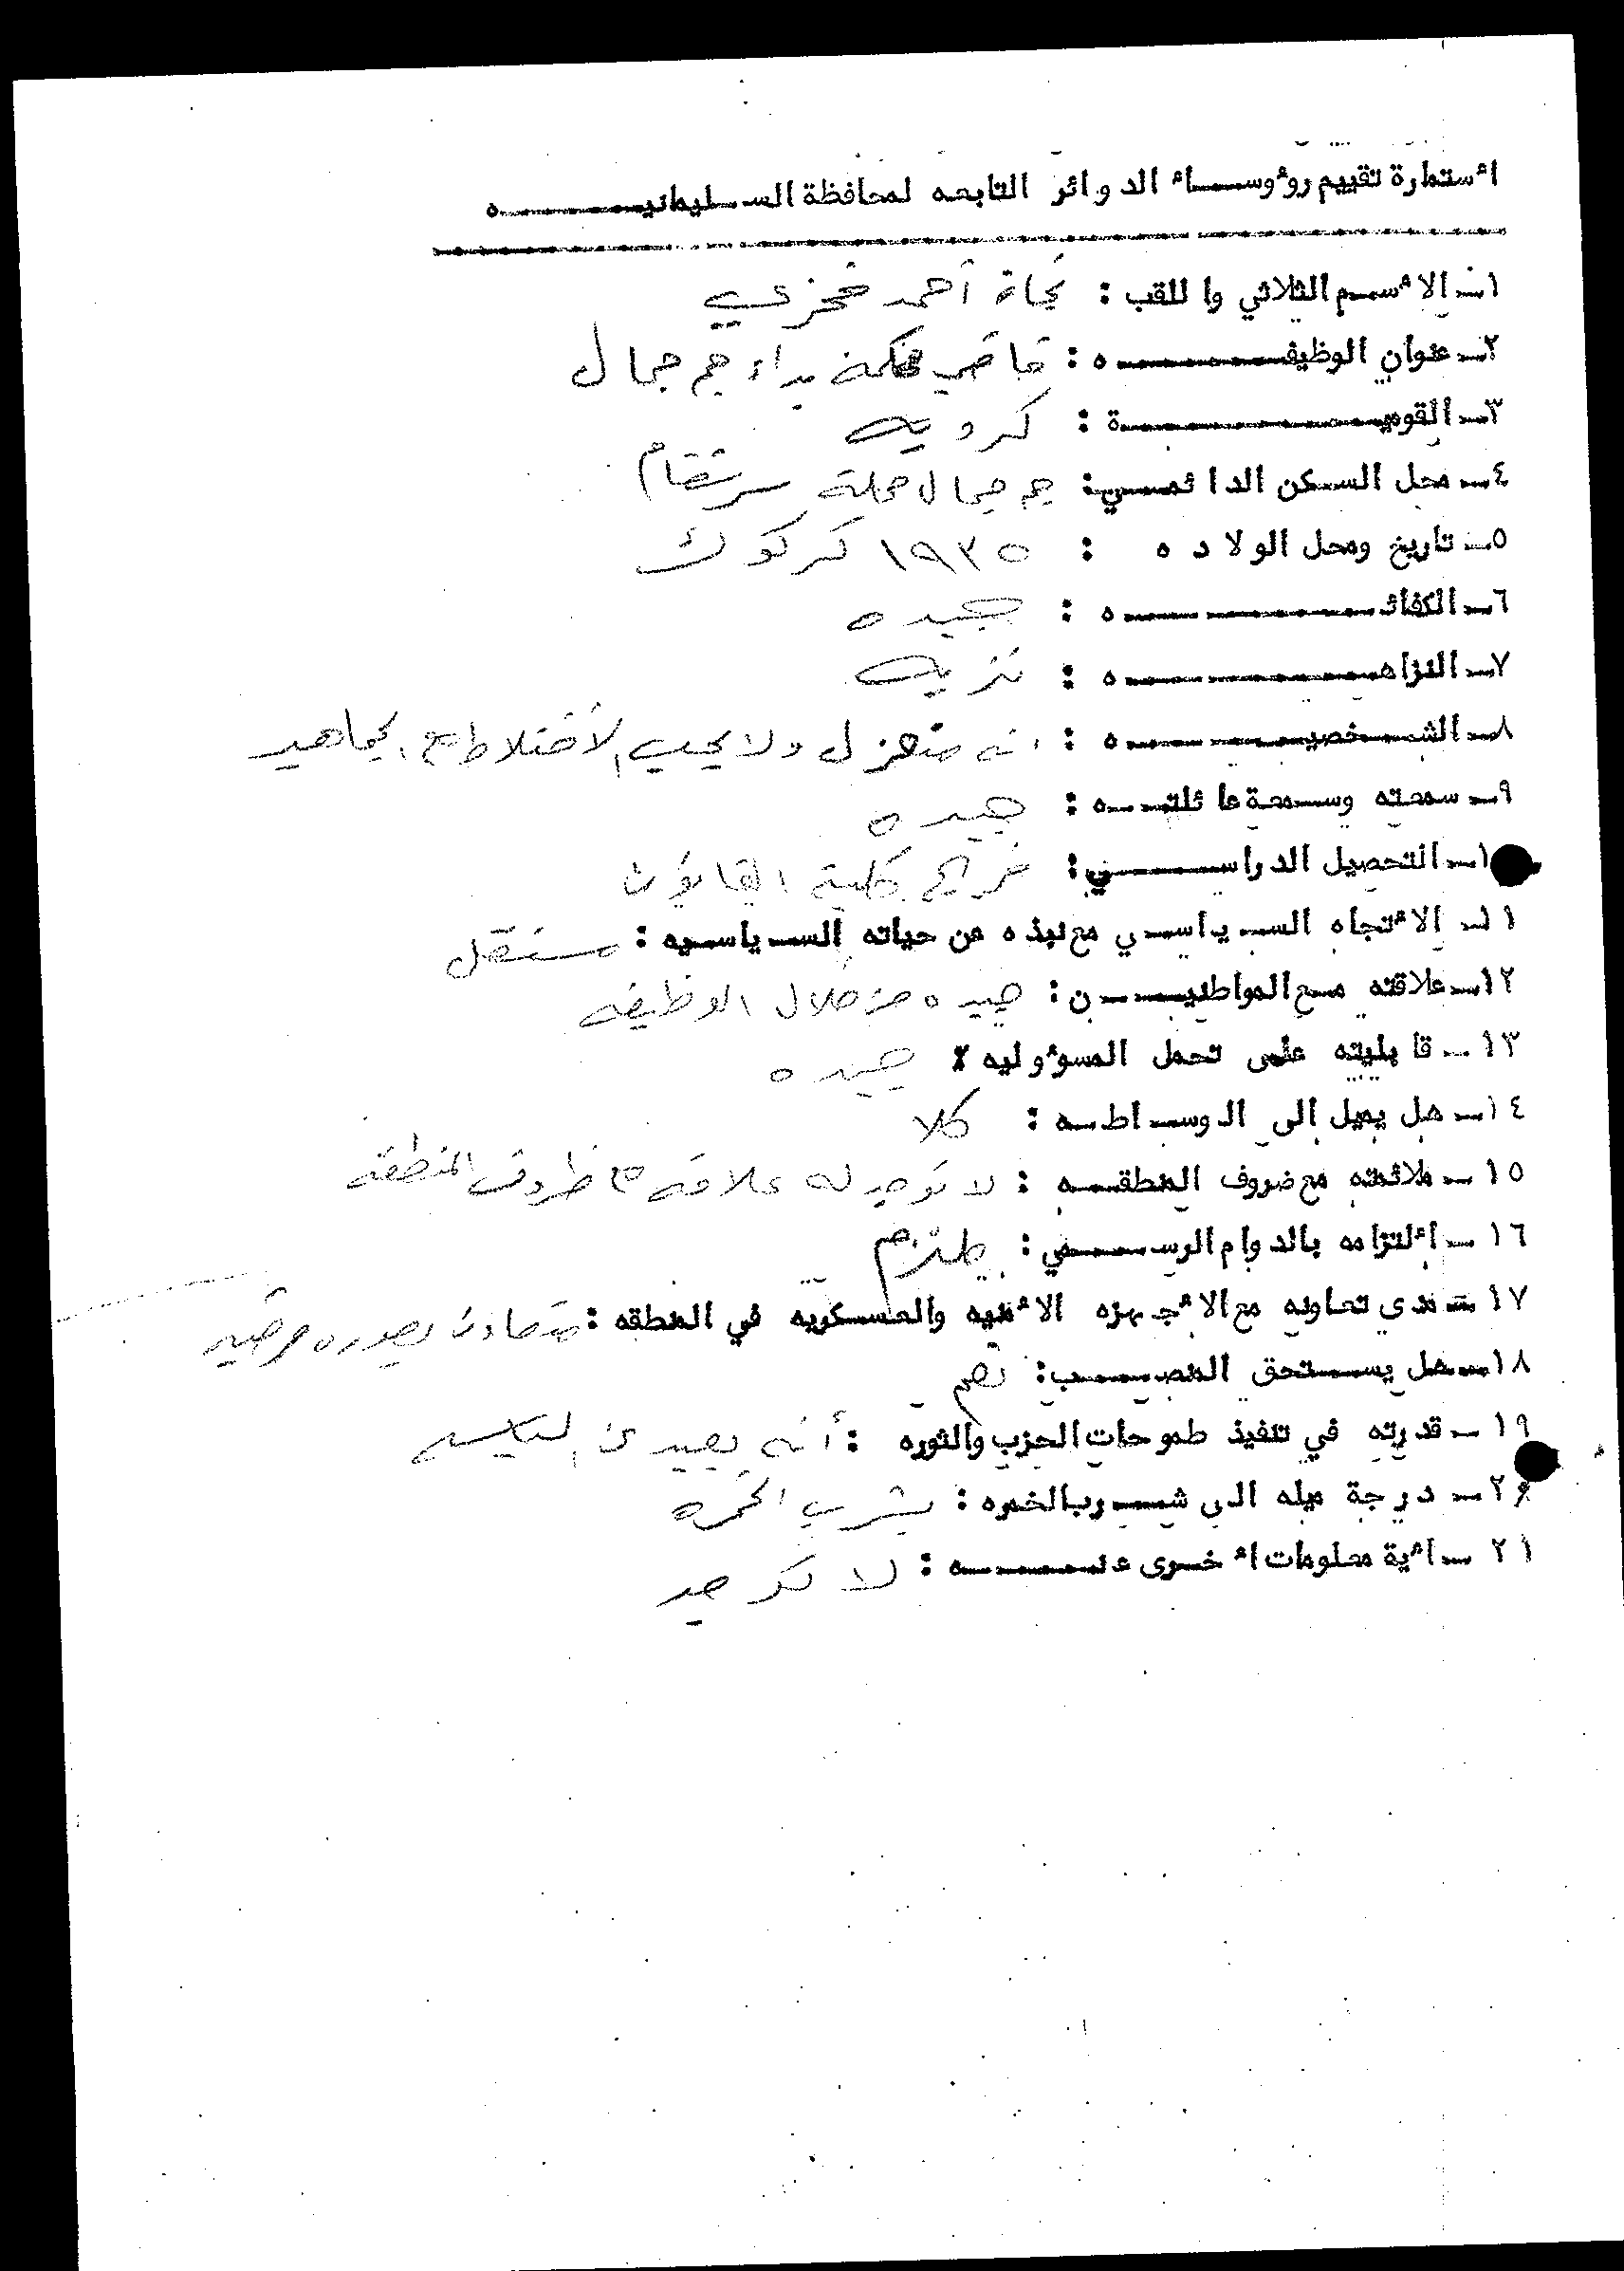 أستمارة تقييم رؤوساء الدوائر التابعه لمحافظة السليمانيه
١ـ الأسم الثلاثي واللقب : نجاة أحمد
٢ـ عنوان الوظيفه : قاضي محكمة بداءة جم جمال
٣ـ القومية : كرديه
٤ـ محل السكن الدائمي : جم جمال محلة
٥ـ تاريخ ومحل الولاده : ١٩٣٥ كركوك
٦ـ الكفائه : جيده
٧ـ النزاهه : نزيه
٨ـ الشخصيه : انه منعزل ولا يحب الأختلاط مع الجماهير
٩ـ سمعته وسمعة عائلته : جيده
١٠ـ التحصيل الدراسي : خريج كلية القانون
١١ـ الأتجاه السياسي مع نبذه عن حياته السياسيه : مستقل
١٢ـ علاقته مع المواطنين : جيده من خلال الوظيفه
١٣ـ قابليته على تحمل المسؤوليه : جيده
١٤ـ هل يميل الى الوساطه : كلا
١٥ـ ملائمته مع ضروف المنطقه : لا توجد له علاقه مع ظروف المنطقه
١٦ـ ألتزامه بالدوام الرسمي : ملتزم
١٧ـ مدى تعاونه مع الأجهزه الأمنيه والعسكريه في المنطقه : متعاون بصوره مرضيه
١٨ـ هل يستحق المنصب : نعم
١٩ـ قدرته في تنفيذ طموحات الحزب والثوره : أنه بعيد عن
٢٠ـ درجة ميله الى شرب الخمره : يشرب الخمره
٢١ـ أية معلومات أخرى عنه : لا توجد